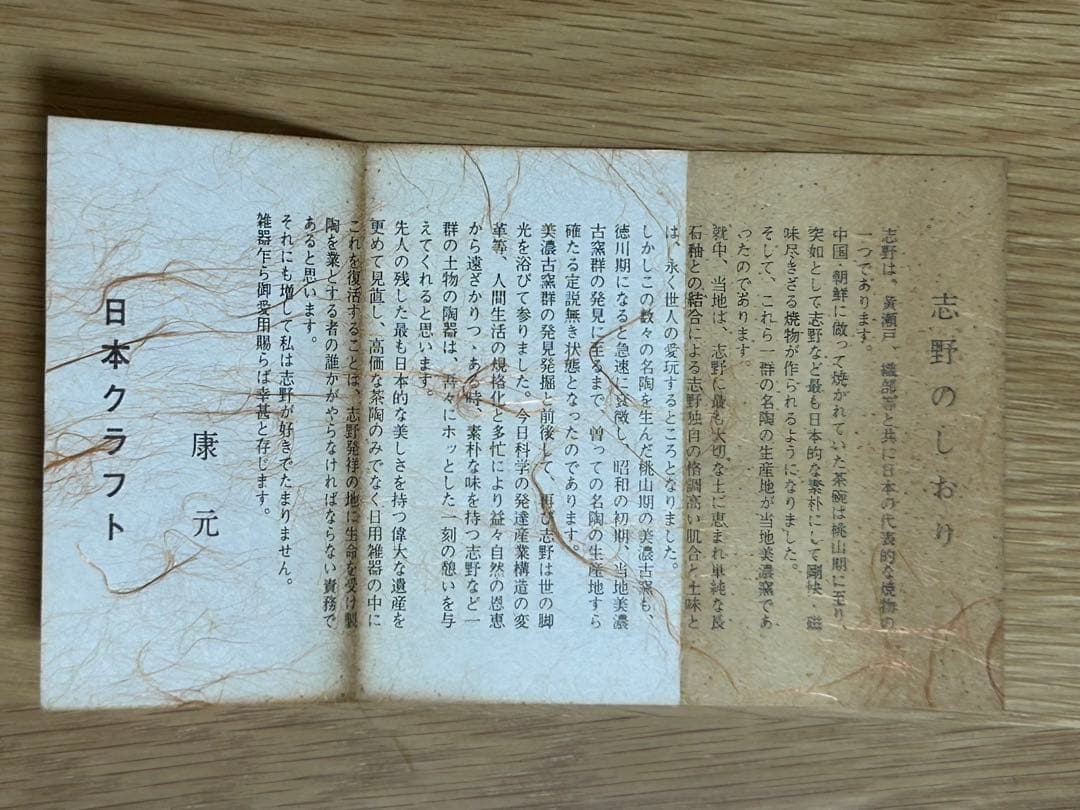 志野のしおり
志野は、黄瀬戸、織部等と共に日本の代表的な焼物の
一つであります。
中国・朝鮮に倣って焼かれていた茶碗は桃山期に至り
突如として志野など最も日本的な素朴にして剛快・磁
味尽きざる焼物が作られるようになりました。
そして、これら一群の名陶の生産地が当地美濃窯であ
ったのであります。
就中、当地は、志野に最も大切な土に恵まれ単純な長
石釉との結合による志野独自の格調高い肌合と土味と
は、永く世人の愛玩するところとなりました。
しかしこの数々の名陶を生んだ桃山期の美濃古窯も、
徳川期になると急速に衰微し、昭和の初期、当地美濃
古窯群の発見に至るまで、曽っての名陶の生産地すら
確たる定説無き状態となったのであります。
美濃古窯群の発見発掘と前後して、再び志野は世の脚
光を浴びて参りました。今日科学の発達産業構造の変
革等、人間生活の規格化と多忙により益々自然の恩恵
から遠ざかりつゝある時、素朴な味を持つ志野など一
群の土物の陶器は、吾々にホッとした一刻の憩いを与
えてくれると思います。
先人の残した最も日本的な美しさを持つ偉大な遺産を
更めて見直し、高価な茶陶のみでなく日用雑器の中に
これを復活することは、志野発祥の地に生命を受け製
陶を業とする者の誰かがやらなければならない責務で
あると思います。
それにも増して私は志野が好きでたまりません。
雑器乍ら御愛用賜らば幸甚と存じます。
康元
日本クラフト